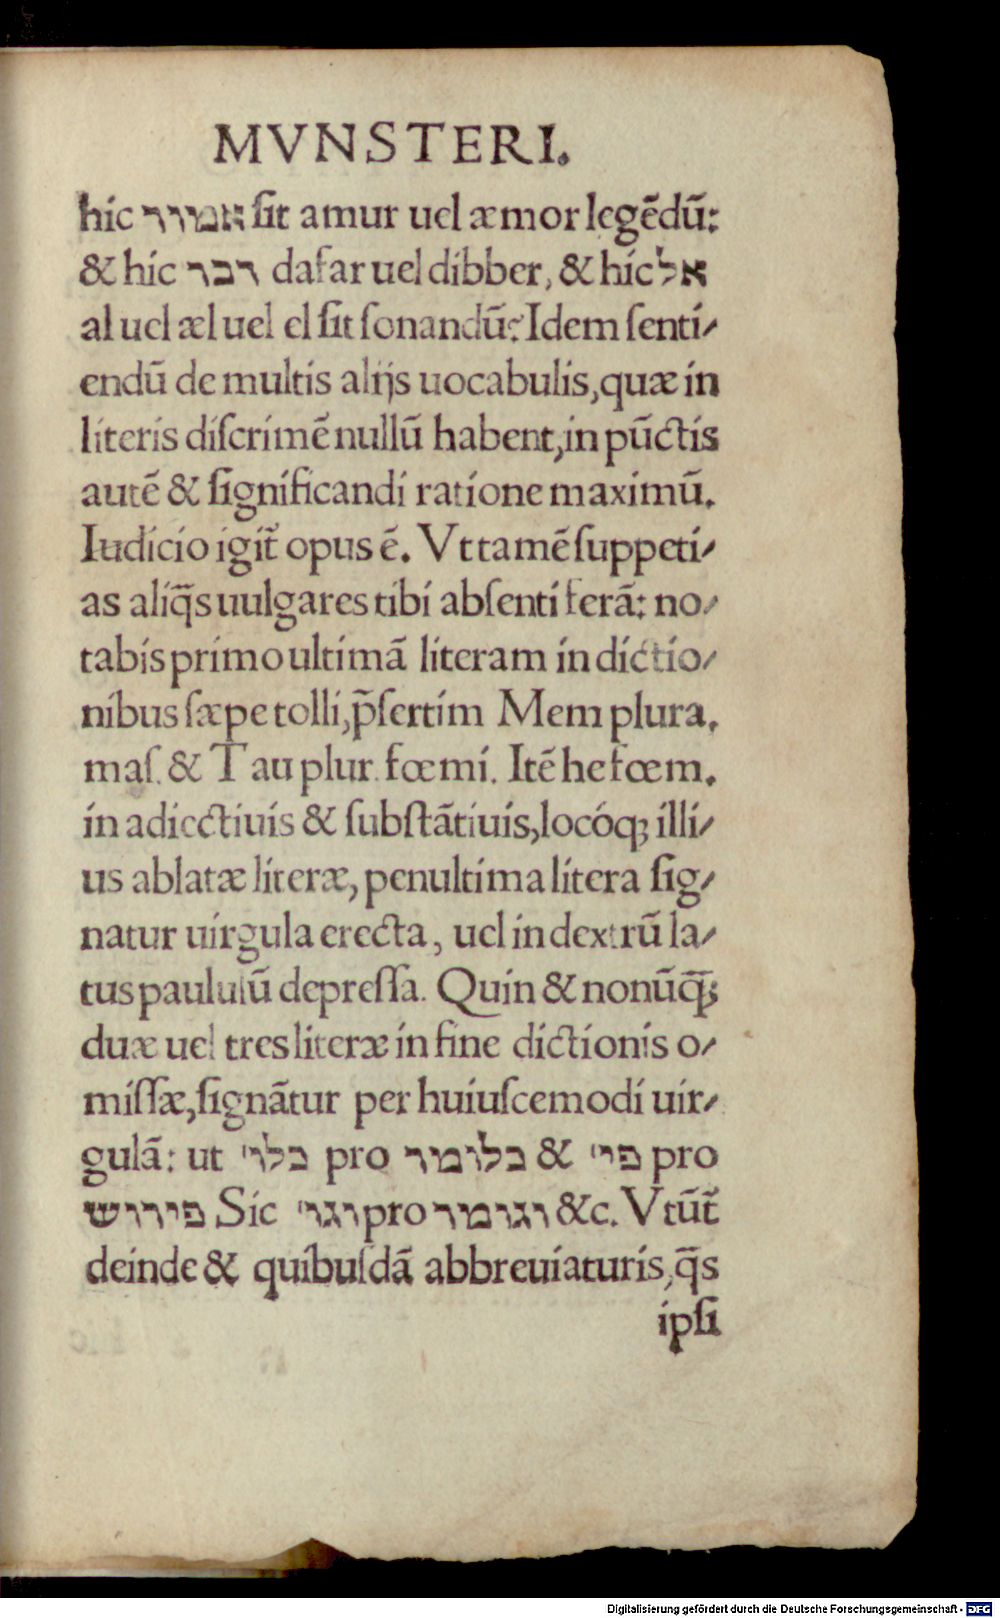 MVNSTERI.
hic אמור sit amur uel æmor legẽdũ:
& hic דבר dafar uel dibber, & hic אל
al uel æl uel el sit sonandũ? Idem senti⸗
endũ de multis alijs uocabulis, quæ in
literis discrimẽ nullũ habent, in pũctis
autẽ & significandi ratione maximũ.
Iudicio igit᷑ opus ẽ. Vt tamẽ suppeti⸗
as aliq̃s uulgares tibi absenti ferã: no⸗
tabis primo ultimã literam in dictio⸗
nibus sæpe tolli, p̃sertim Mem plura.
mas. & Tau plur. fœmi. Itẽ he fœm.
in adiectiuis & substãtiuis, locóq; illi⸗
us ablatæ literæ, penultima litera sig⸗
natur uirgula erecta, uel in dextrũ la⸗
tus paululũ depressa. Quin & nonũq̃;
duæ uel tres literæ in fine dictionis o⸗
missæ, signãtur per huiuscemodi uir⸗
gulã: ut כלו׳ pro כלומר & פי׳ pro
פירוש Sic וגו׳ pro וגומר &c. Vtũt᷑
deinde & quibusdã abbreuiaturis, q̃s
ipsi
Digitalisierung gefördert durch die Deutsche Forschungsgemeinschaft - DFG